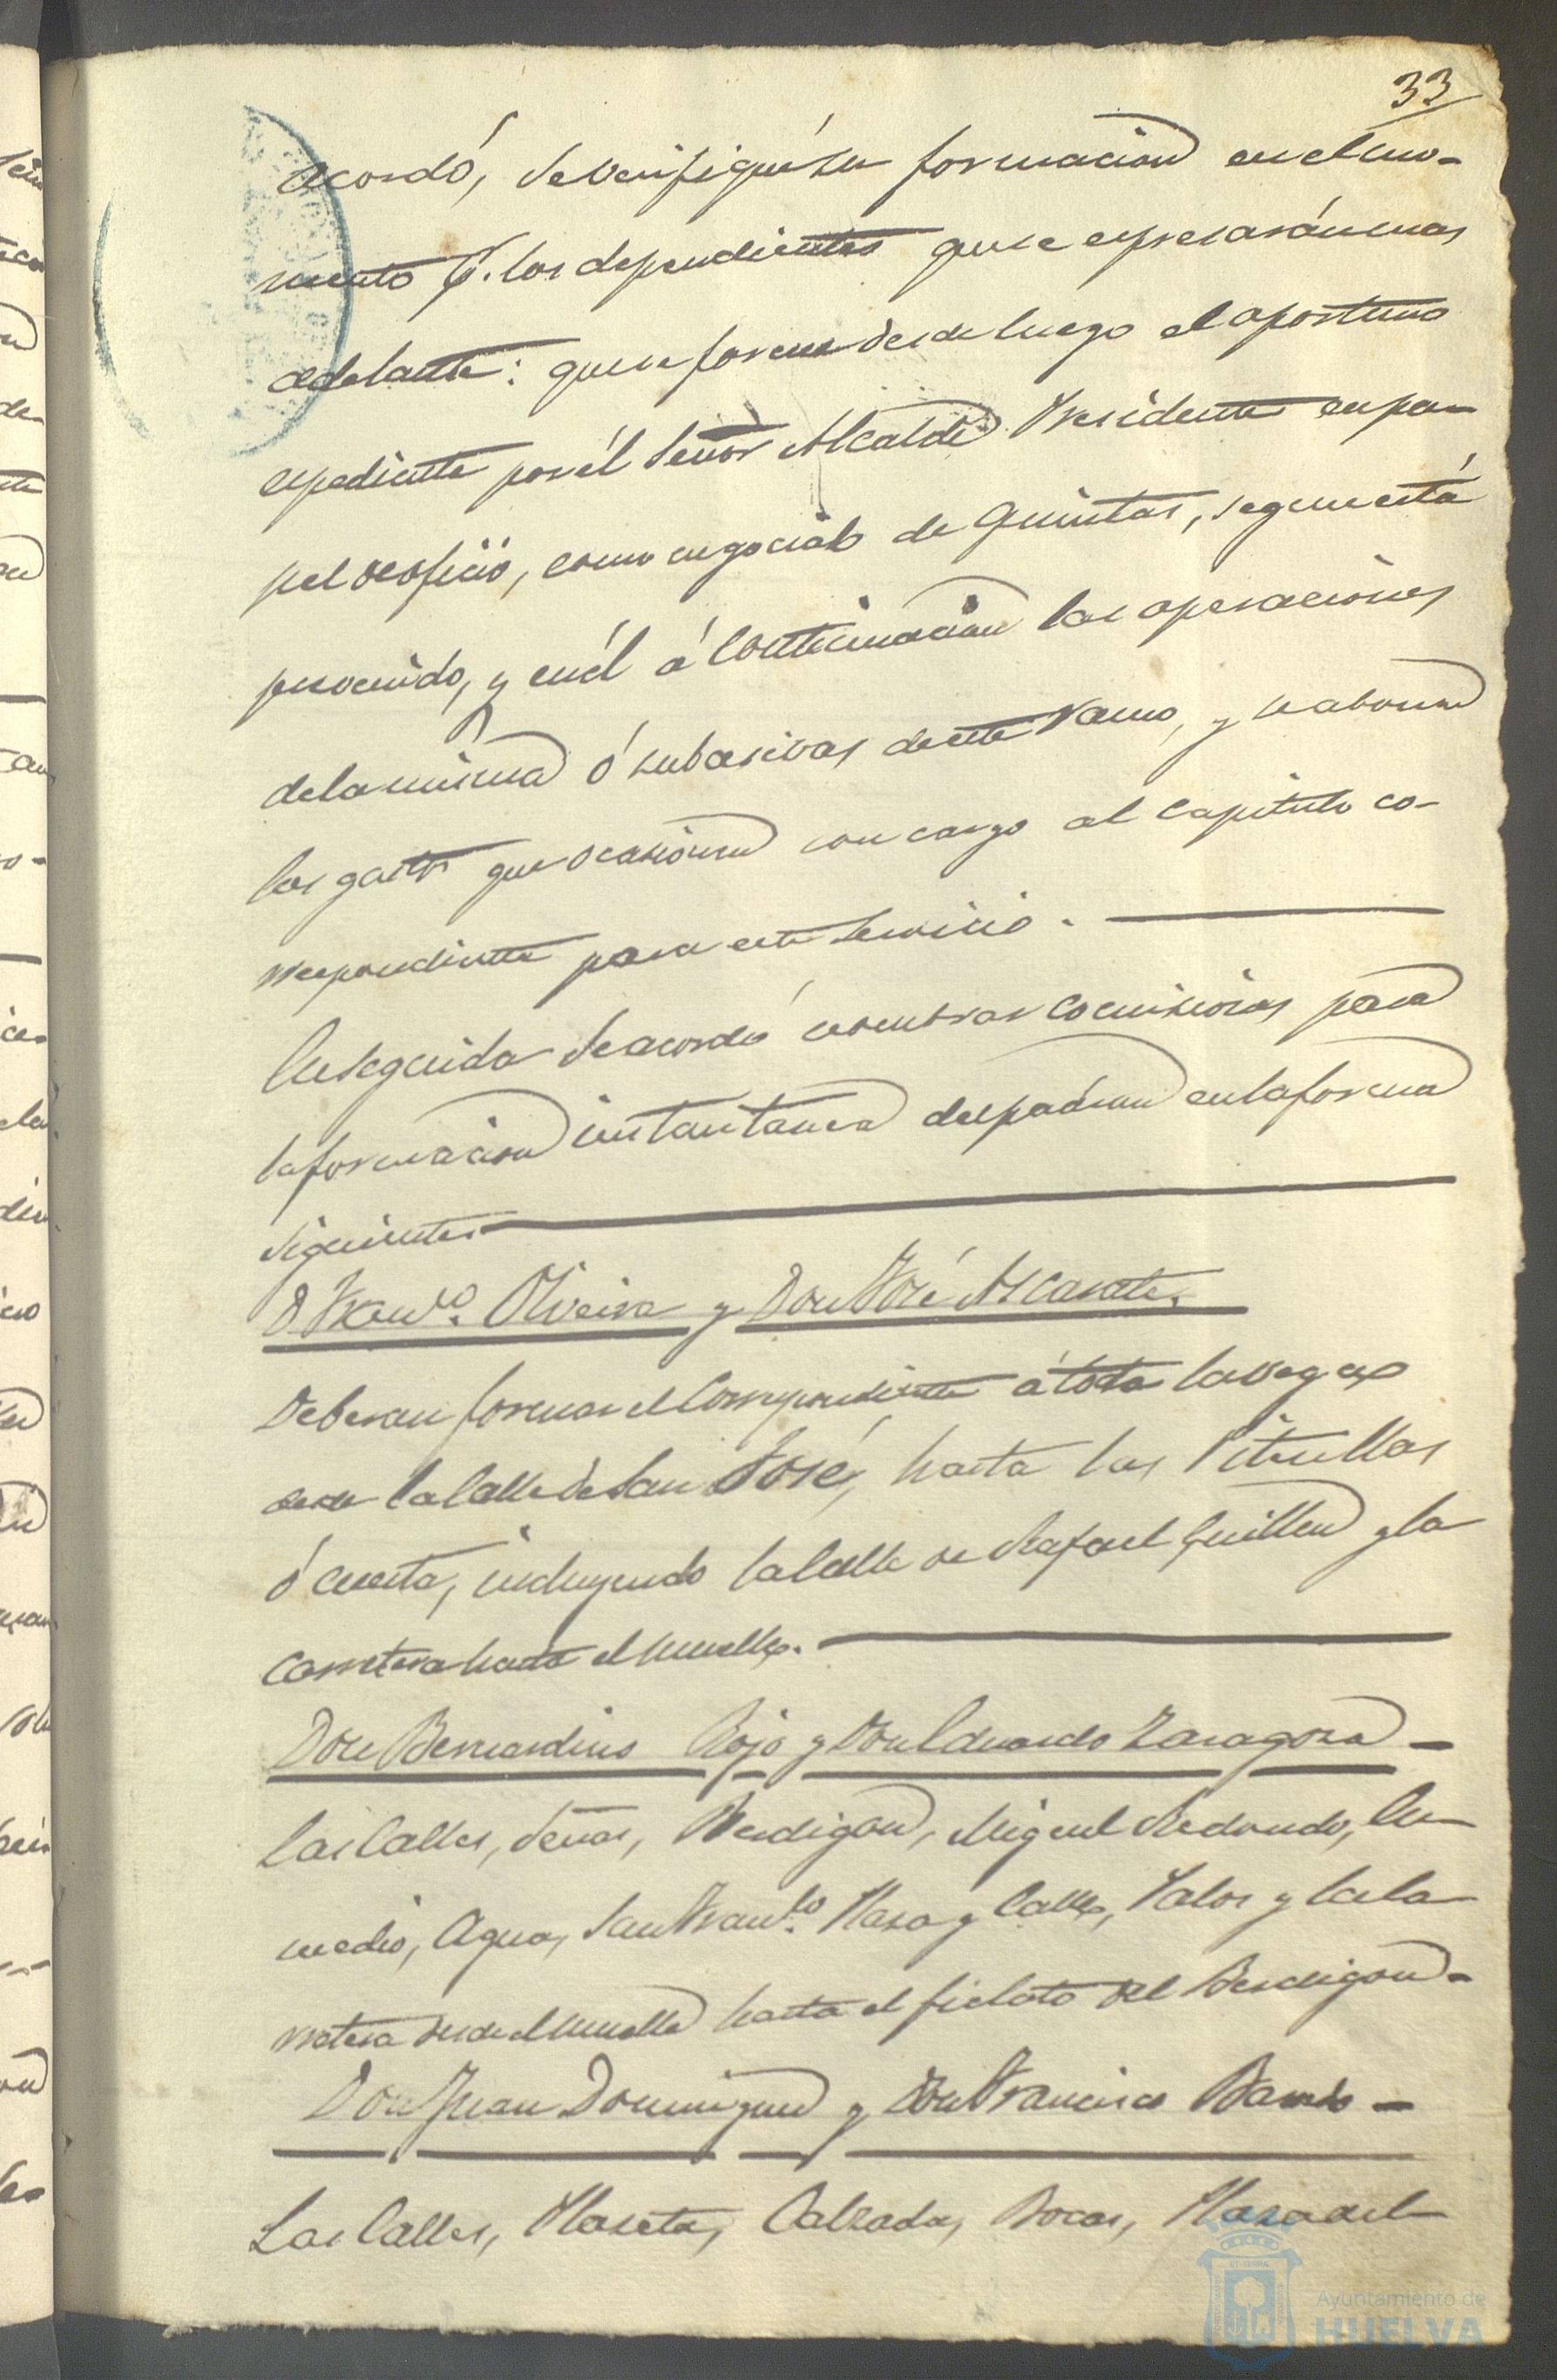 33
acordó, se verifique su formacion en el mo-
mento p.r los dependientes que se espresarán mas
adelante: que se forme desde luego el oportuno
espediente por el Señor Alcalde Presidente en pa-
pel de oficio, como negociado de Quintas, segun está
prevenido, y en él á Continuacion las operaciones
de la misma ó subcesivas de este ramo, y se abonen
los gastos que ocasionen con cargo al Capitulo co-
rrespondiente para este Servicio.
En seguida Se acordó nombrar Comisiones para
la formacion instantanea del padron en la forma
siguiente.
D Franco. Oliveira y Don José Alcarate.
Deberan formar el Correspondiente á toda la Vega
desde la Calle de San José, hasta las
ó cuesta, incluyendo la Calle de Rafael Guillen y la
Carretera hasta el Muelle.
Don Bernardino Rojo y Don Eduardo Zaragoza -
Las Calles, Señas, Berdigon, Miguel Redondo, En-
medio, Agua, San Franco. Plaza y Calle, Palos y la Ca-
rretera desde el Muelle hasta el fielato del Berdigon -
Don Juan Dominguez y Don Francisco Barrés -
Las Calles, Placeta, Calzada, Bocas, Plaza del
Ayuntamiento de
HUELVA